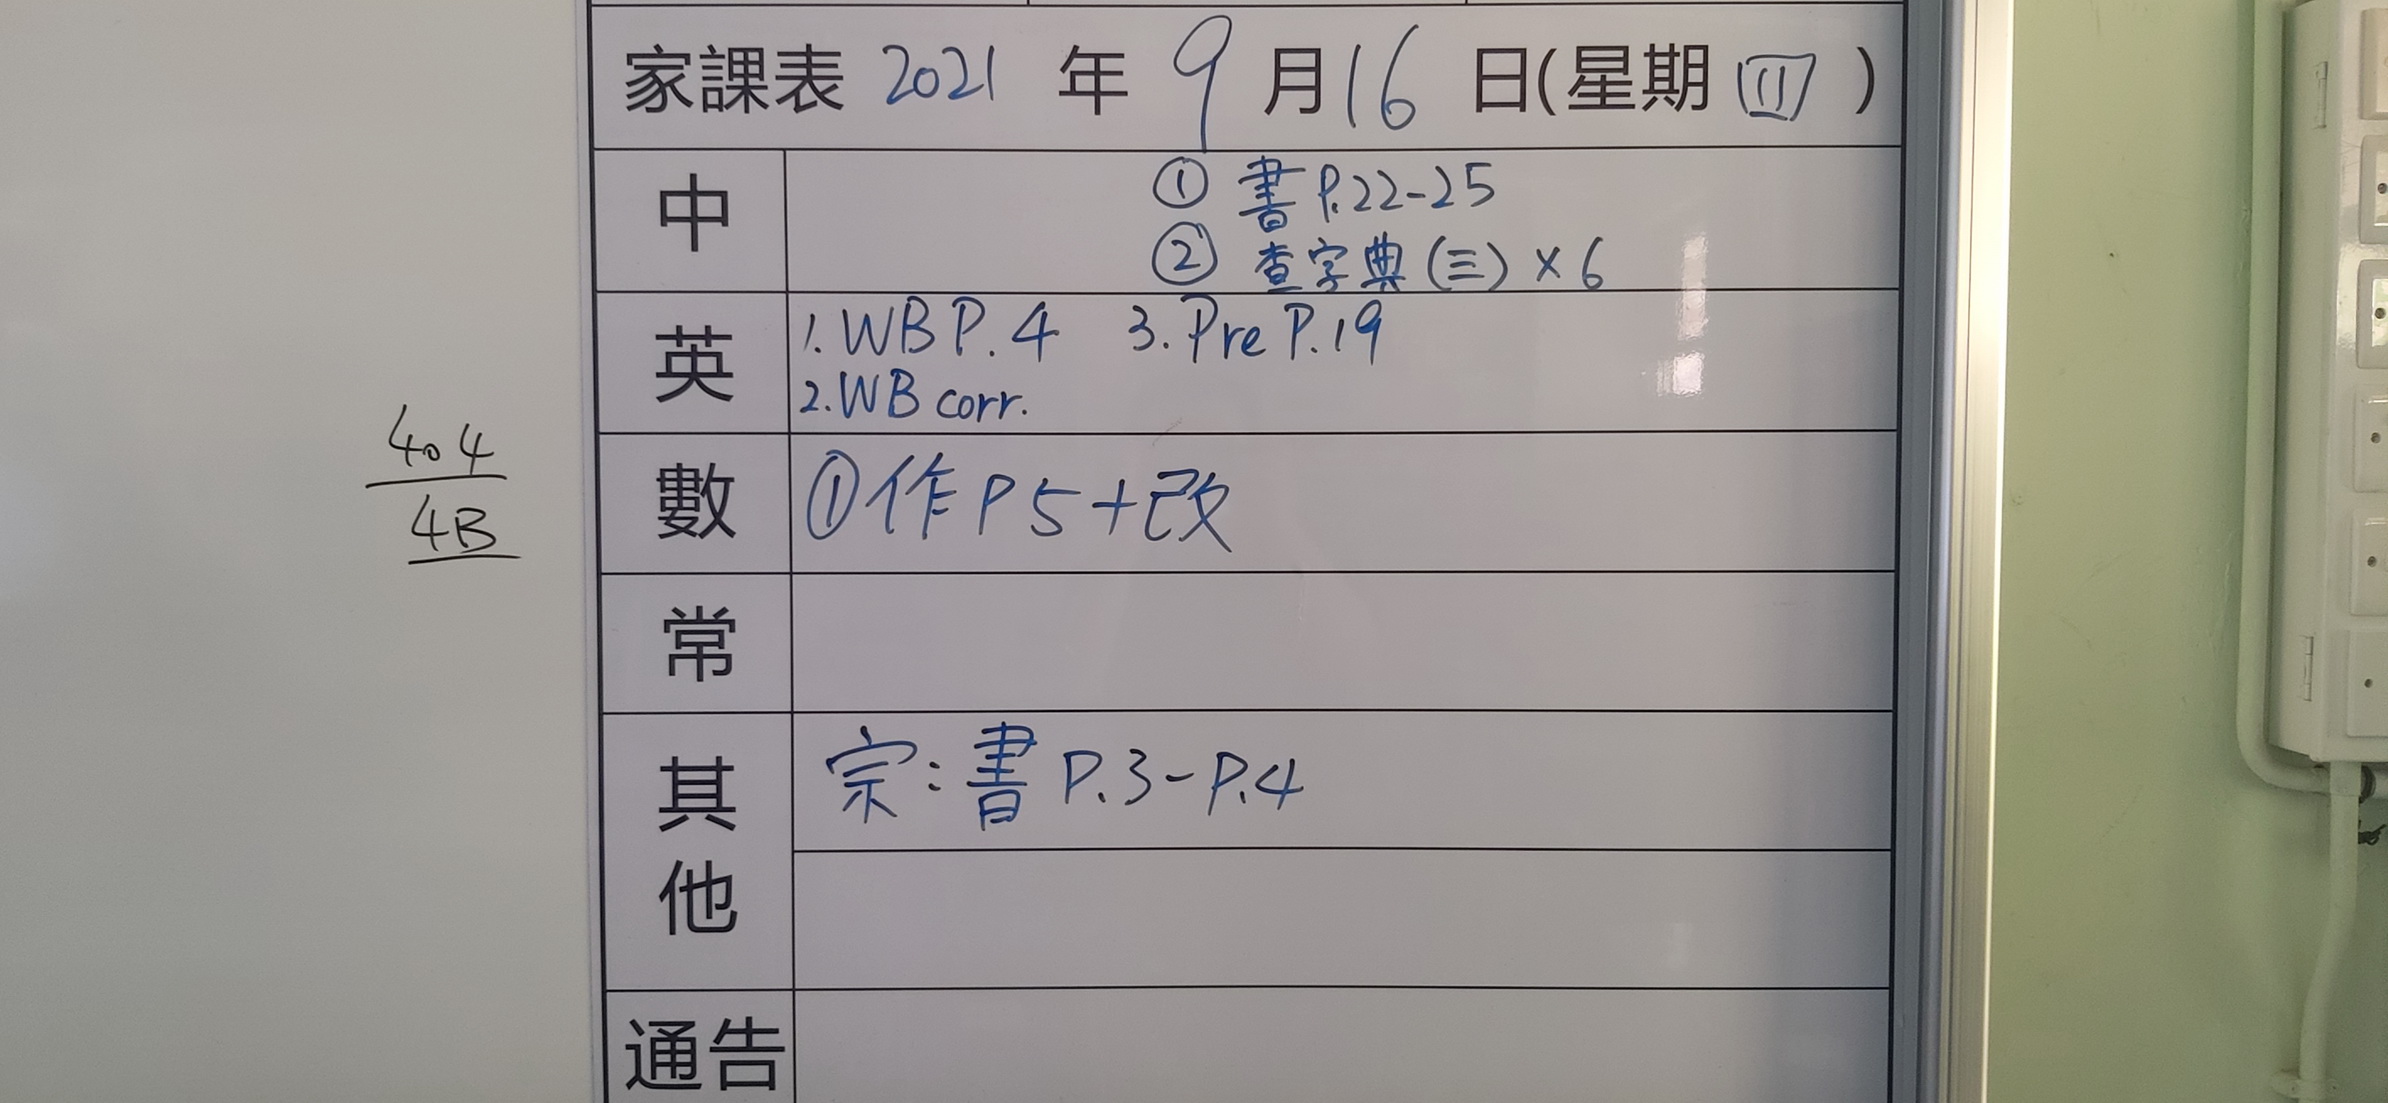 家課表 2021 年 9 月 16 日(星期 四 )
中
① 書 P.22-25
② 查字典 (三) × 6
英
1. WB P. 4 3. Pre P.19
2. WB corr.
404
4B
數
① 作 P 5 + 改
常
其他
宗 : 書 P.3 - P.4
通告